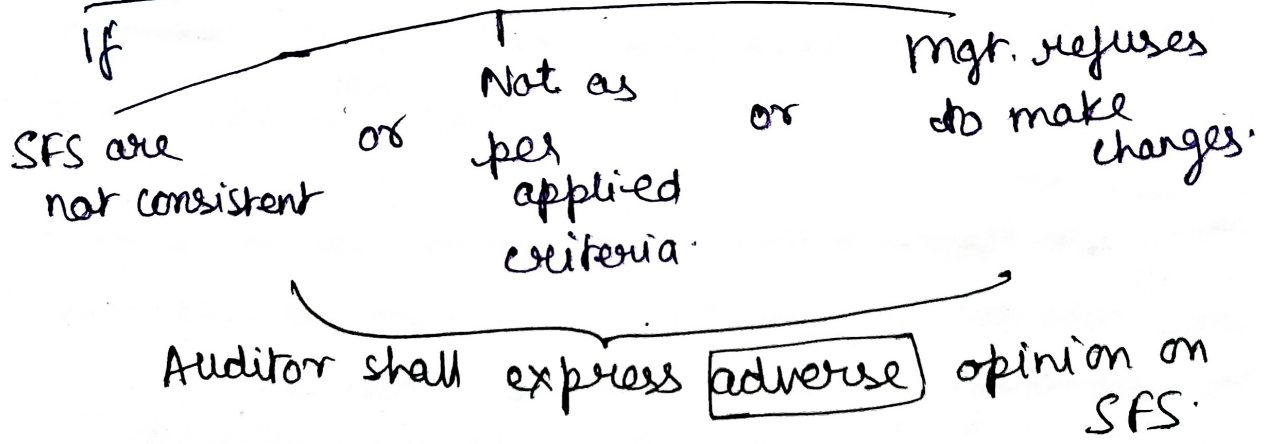 If
SFS are
not consistent
or
Not as
per
applied
criteria.
or
Mgt. refuses
to make
changes.
Auditor shall express adverse opinion on
SFS.